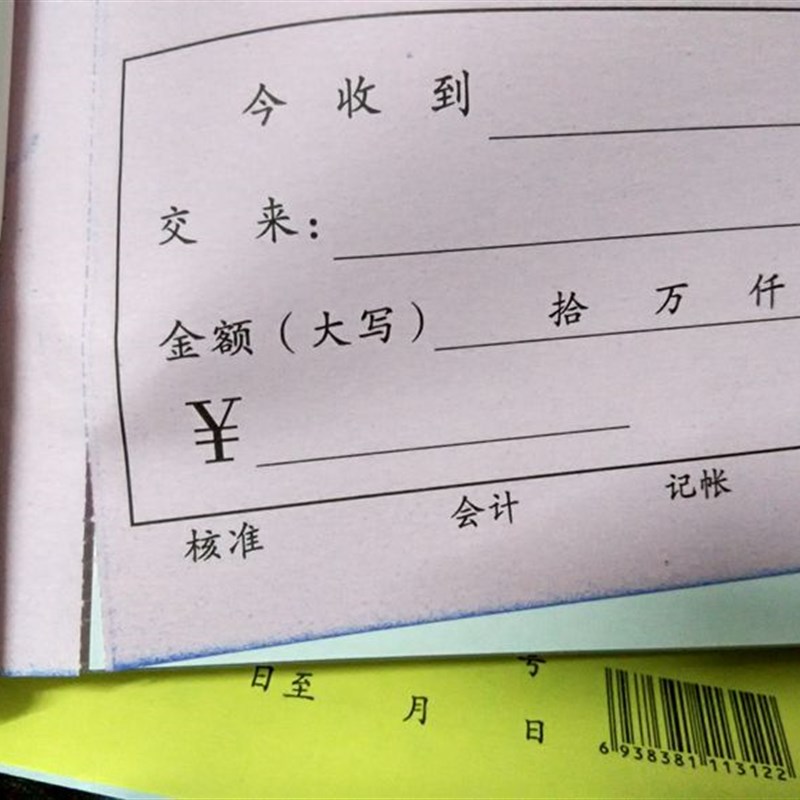 今收到
交来:
金额(大写) 拾 万 仟
¥
核准 会计 记帐
号
日至 月 日
6 938381 113122